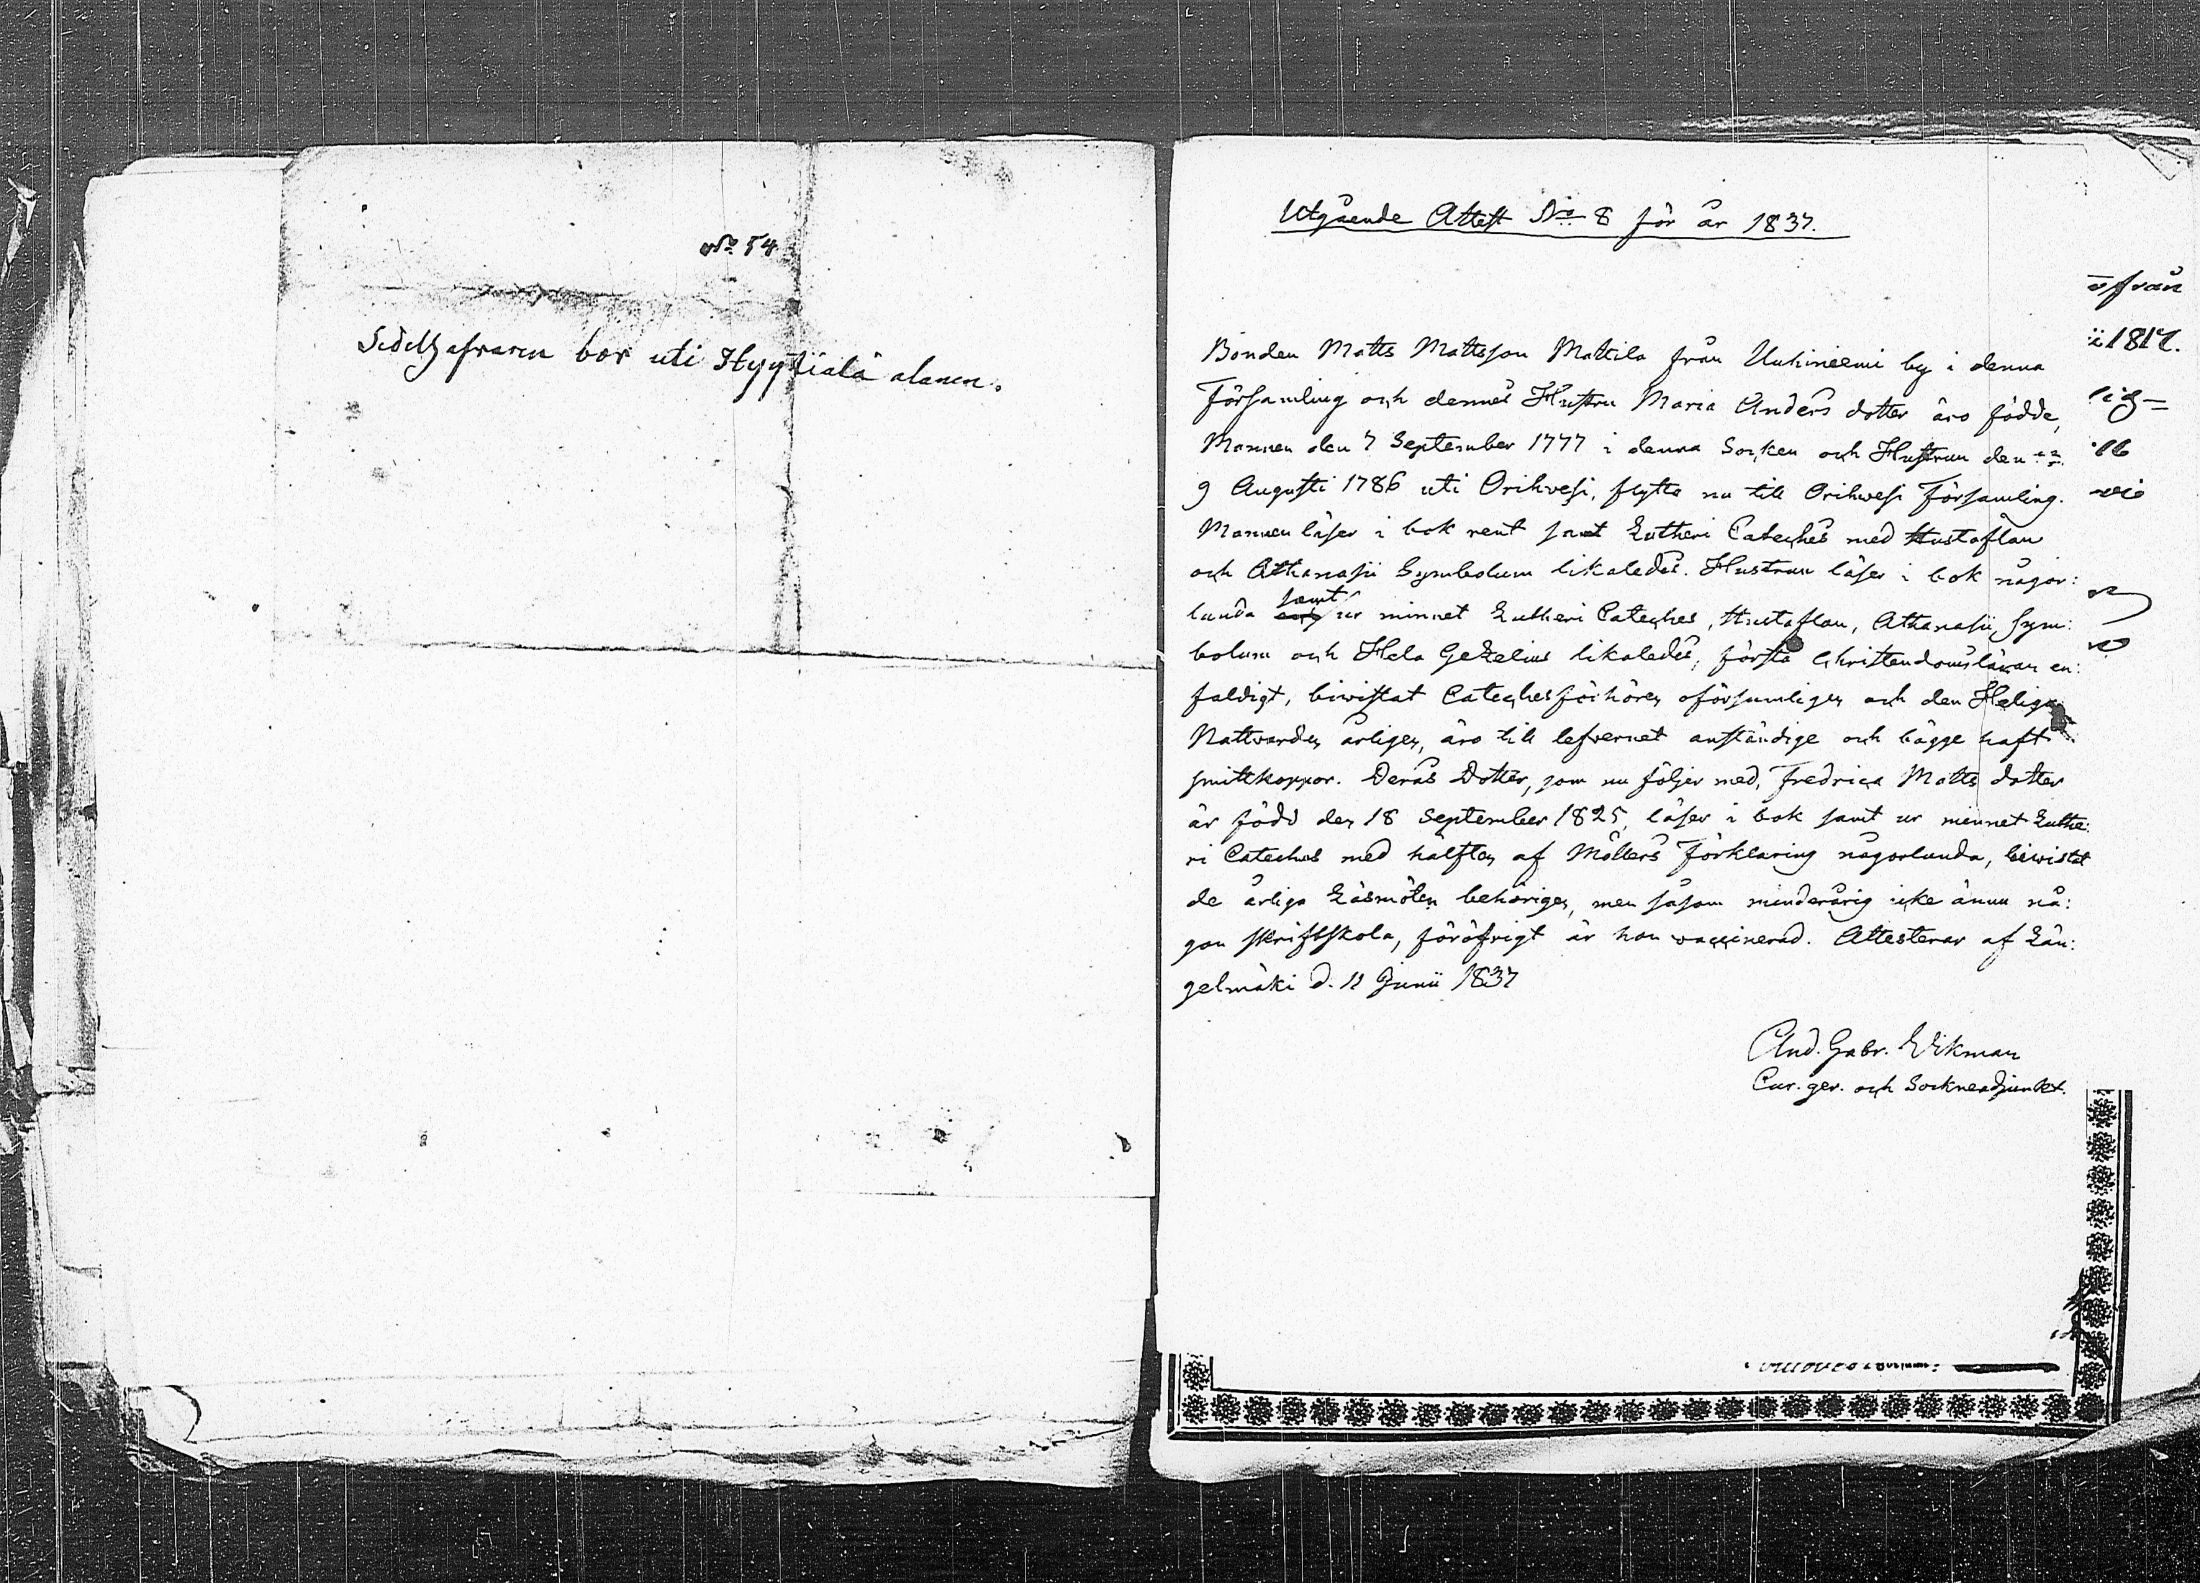 No 54
bor uti Hyytiälä alanen.
Utgående Attest No 8 för år 1837.
Bonden Matts Mattsson Mattila från Uuhiniemi by i denna
Församling och dennes Hustru Maria Anders dotter äro födde,
Mannen den 7 September 1777 i denna Socken och Hustrun den
9 Augusti 1786 uti Orihvesi, flytta nu till Orihwesi Församling.
Mannen läser i bok rent samt Lutheri Cateches med Hustaflan
och Athanasii Symbolum likaledes. Hustrun läser i bok någor:
lunda samt ur minnet Lutheri Cateches, Hustaflan, Athanasii Sym:
bolum och Hela Gezelius likaledes, förstå Christendomsläran en:
faldigt, biwistat Catechesförhören oförsumligen och den Heliga
Nattvarden årligen, äro till lefvernet anständige och bägge haft
smittkoppor. Deras Dotter, som nu följer med, Fredrica Matts dotter
är född den 18 September 1825, läser i bok samt ur minnet Luthe:
ri Cateches med hälften af Möllers Förklaring någorlunda, biwistat
de årliga Läsmöten behörigen, men såsom minderårig icke ännu nå:
gon skriftskola, föröfrigt är hon vaccinerad. Attesterar af Län:
gelmäki d. 11 Junii 1837
And. Gabr. Wikman
Cur. ger. och Sockneadjunkt.
från
1817.
lig=